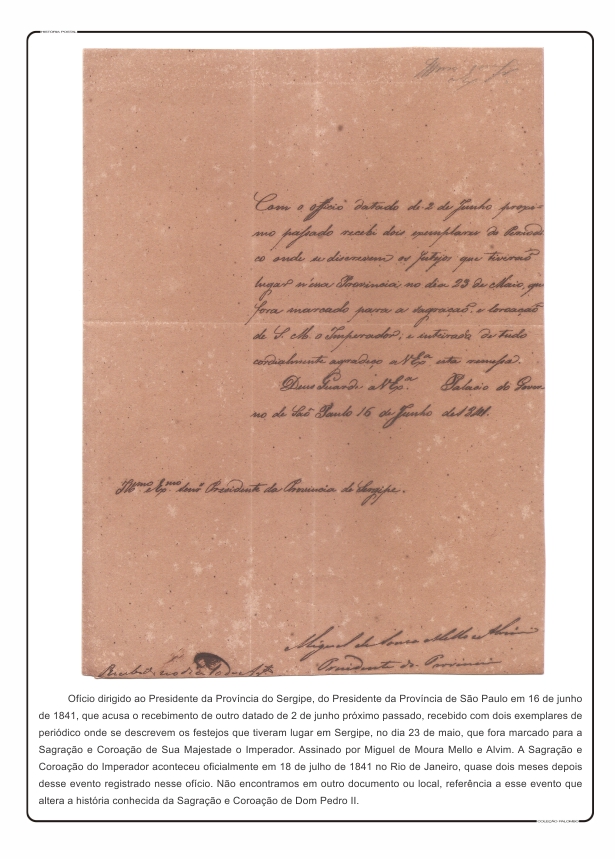 HISTÓRIA POSTAL
Com o officio datado de 2 de Junho proxi-
mo passado recebi dois exemplares do Periodi
co onde se discrevem os festejos que tiverão
lugar n'essa Provincia no dia 23 de Maio, que
fora marcado para a sagração, e coroação
de S. M. o Imperador; e inteirado de tudo
cordialmente agradeço a V Exª esta remessa.
Deos Guarde a V Exª. Palacio do Gover
no de São Paulo 16 de Junho de 1841.
Illmo e Exmo Senr Presidente da Provincia de Sergipe.
Miguel de Souza Mello e Alvim
Presidente da Provincia
Ofício dirigido ao Presidente da Província do Sergipe, do Presidente da Província de São Paulo em 16 de junho
de 1841, que acusa o recebimento de outro datado de 2 de junho próximo passado, recebido com dois exemplares de
periódico onde se descrevem os festejos que tiveram lugar em Sergipe, no dia 23 de maio, que fora marcado para a
Sagração e Coroação de Sua Majestade o Imperador. Assinado por Miguel de Moura Mello e Alvim. A Sagração e
Coroação do Imperador aconteceu oficialmente em 18 de julho de 1841 no Rio de Janeiro, quase dois meses depois
desse evento registrado nesse ofício. Não encontramos em outro documento ou local, referência a esse evento que
altera a história conhecida da Sagração e Coroação de Dom Pedro II.
COLEÇÃO PALOMBO